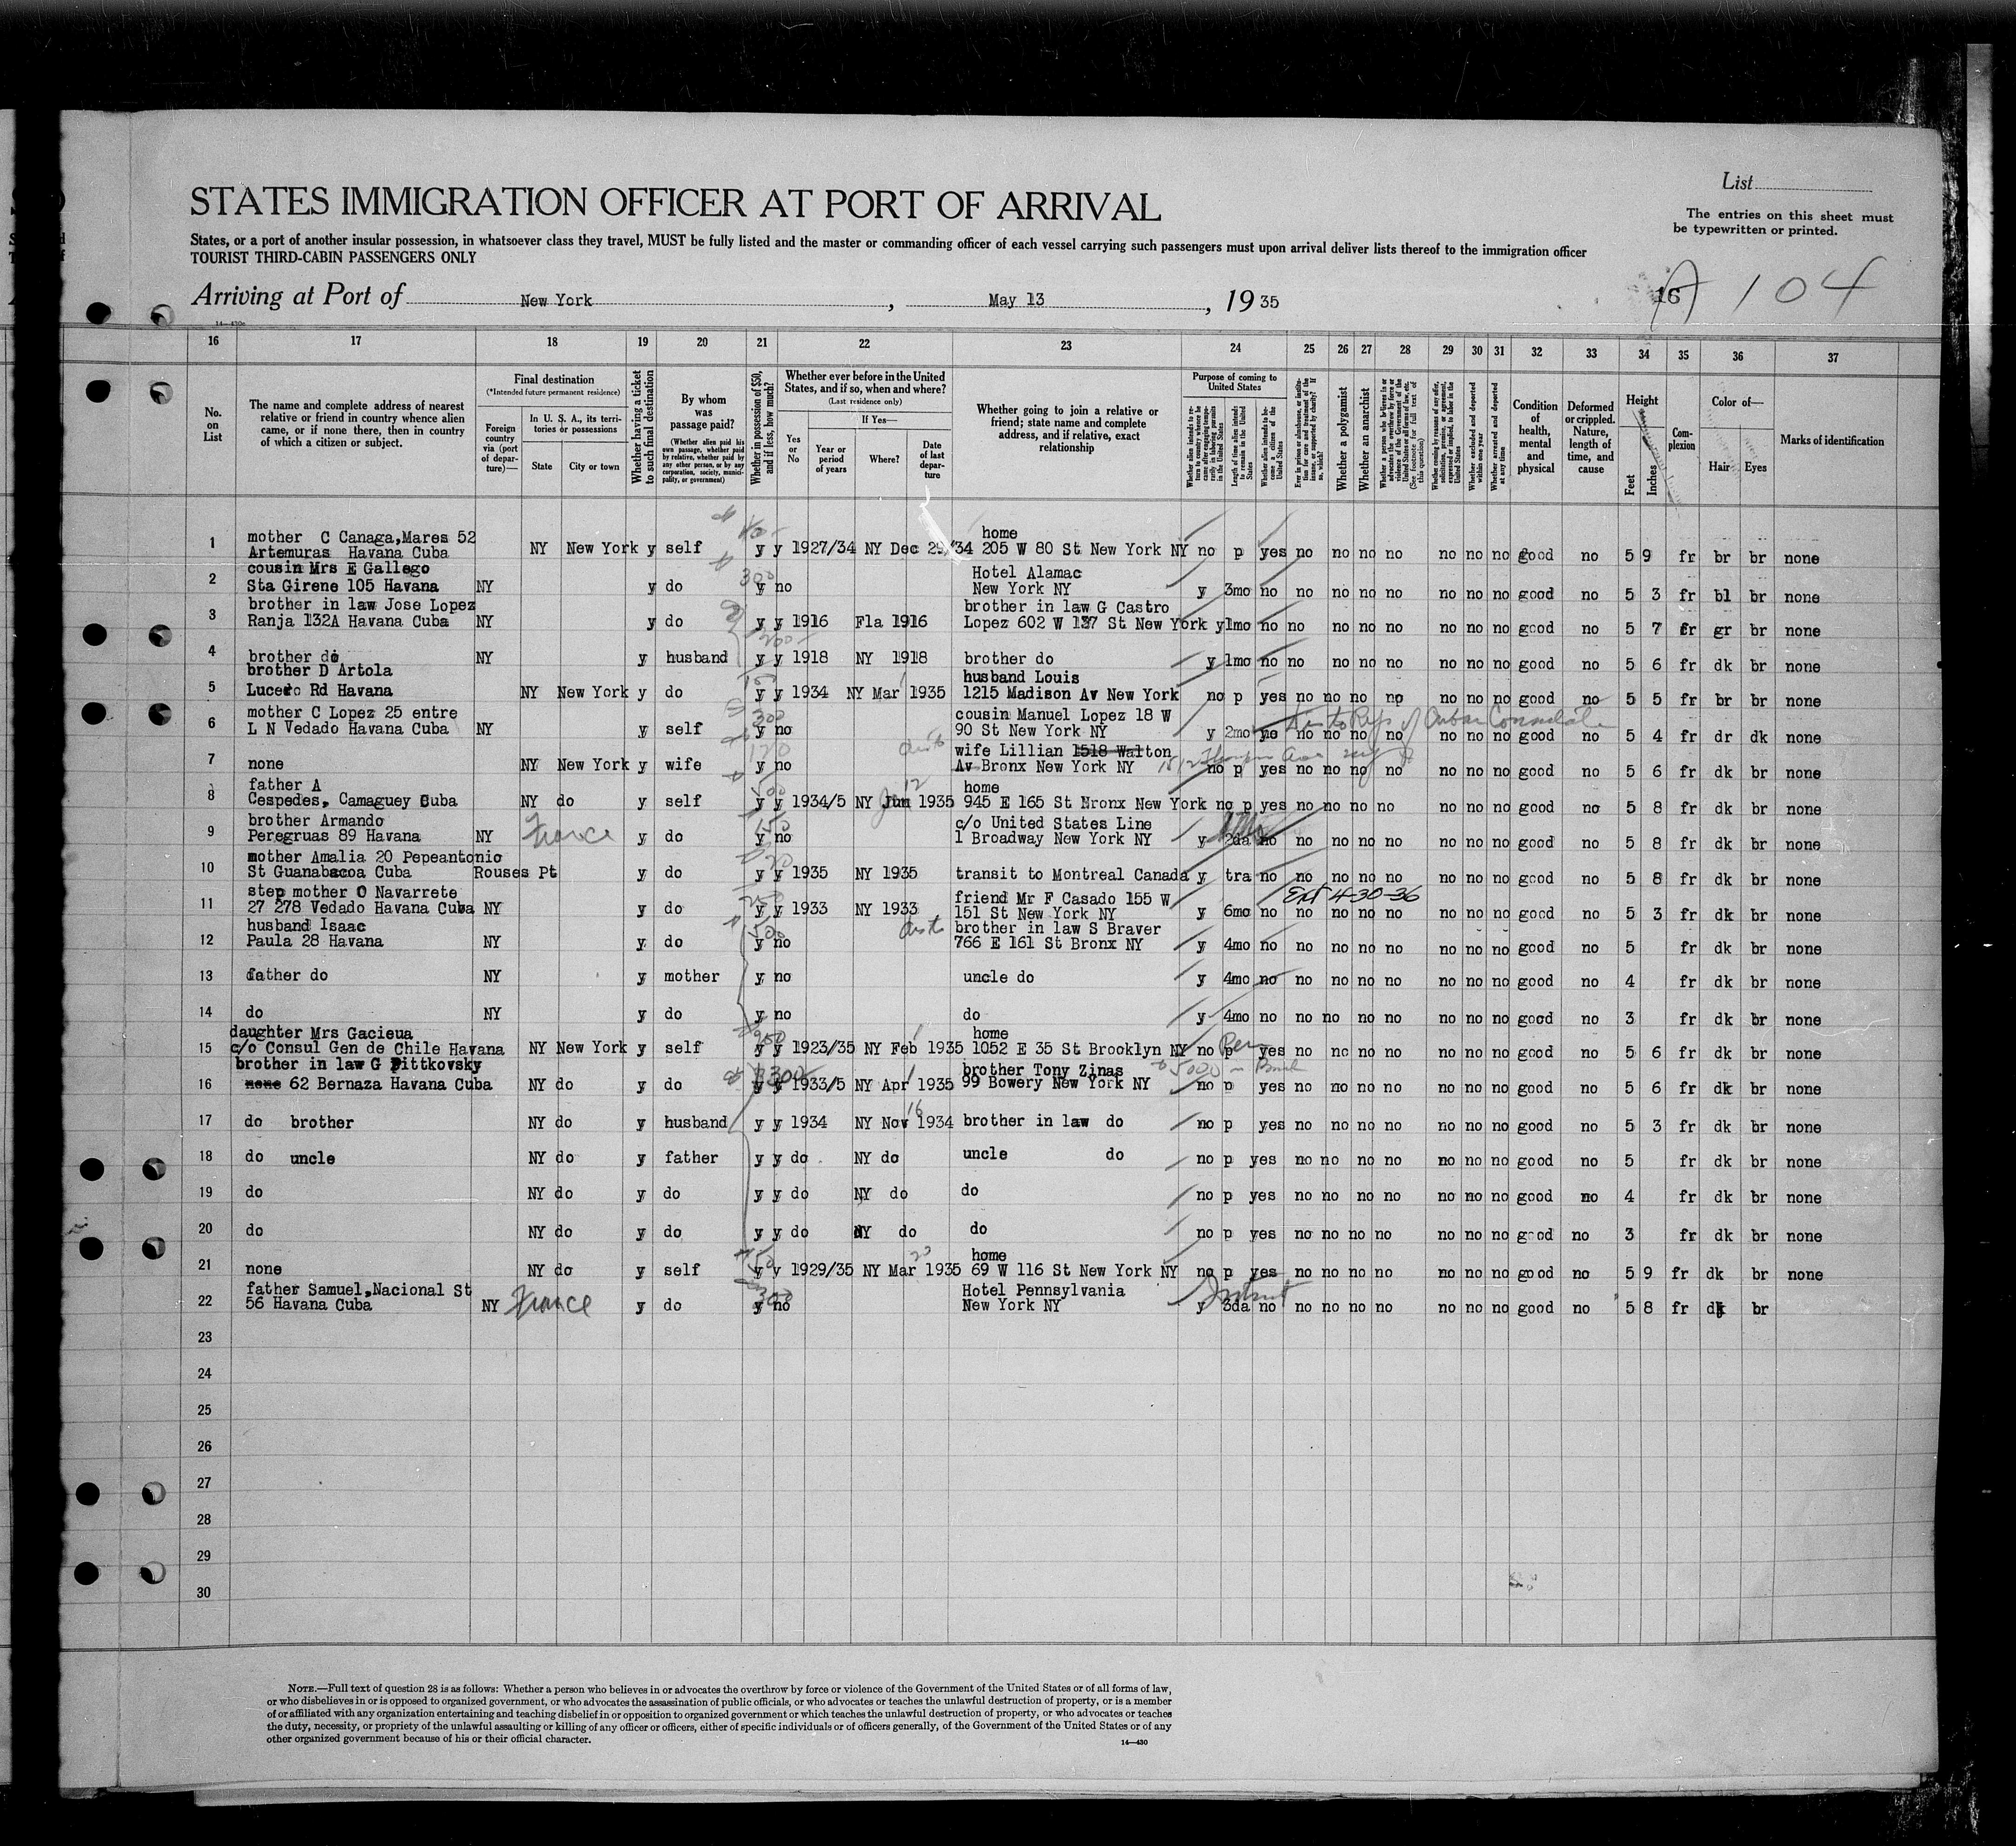 STATES IMMIGRATION OFFICER AT PORT OF ARRIVAL
List
The entries on this sheet must
be typewritten or printed.
States, or a port of another insular possession, in whatsoever class they travel, MUST be fully listed and the master or commanding officer of each vessel carrying such passengers must upon arrival deliver lists thereof to the immigration officer
TOURIST THIRD-CABIN PASSENGERS ONLY
Arriving at Port of New York, May 13, 1935
16 A 104
16 17 18 19 20 21 22 23 24 25 26 27 28 29 30 31 32 33 34 35 36 37
No. on List
The name and complete address of nearest relative or friend in country whence alien came, or if none there, then in country of which a citizen or subject.
Final destination
(*Intended future permanent residence)
Foreign country via (port of departure)—
In U. S. A., its territories or possessions
State
City or town
Whether having a ticket to such final destination
By whom was passage paid?
(Whether alien paid his own passage, whether paid by relative, whether paid by any other person, or by any corporation, society, municipality, or government)
Whether in possession of $50, and if less, how much?
Whether ever before in the United States, and if so, when and where?
(Last residence only)
Yes or No
If Yes—
Year or period of years
Where?
Date of last departure
Whether going to join a relative or friend; state name and complete address, and if relative, exact relationship
Purpose of coming to United States
Whether alien intends to return to country whence he came after engaging temporarily in laboring pursuits in the United States
Length of time alien intends to remain in the United States
Whether alien intends to become a citizen of the United States
Ever in prison or almshouse, or institution for care and treatment of the insane, or supported by charity? If so, which?
Whether a polygamist
Whether an anarchist
Whether a person who believes in or advocates the overthrow by force or violence of the Government of the United States or all forms of law, etc. (See footnote for full text of this question)
Whether coming by reason of any offer, solicitation, promise, or agreement, expressed or implied, to labor in the United States
Whether excluded and deported within one year
Whether arrested and deported at any time
Condition of health, mental and physical
Deformed or crippled. Nature, length of time, and cause
Height
Feet
Inches
Complexion
Color of—
Hair
Eyes
Marks of identification
mother C Canaga,Mares 52 home
1 Artemuras Havana Cuba NY New York y self y y 1927/34 NY Dec 29/34 205 W 80 St New York NY no p yes no no no no no no no good no 5 9 fr br br none
cousin Mrs E Gallego Hotel Alamac
2 Sta Girene 105 Havana NY y do 300 y no New York NY y 3mo no no no no no no no no good no 5 3 fr bl br none
brother in law Jose Lopez brother in law G Castro
3 Ranja 132A Havana Cuba NY y do y y 1916 Fla 1916 Lopez 602 W 137 St New York y 1mo no no no no no no no no good no 5 7 fr gr br none
4 brother do NY y husband y y 1918 NY 1918 brother do y 1mo no no no no no no no no good no 5 6 fr dk br none
brother D Artola husband Louis
5 Lucero Rd Havana NY New York y do y y 1934 NY Mar 1935 1215 Madison Av New York no p yes no no no no no no no good no 5 5 fr br br none
mother C Lopez 25 entre cousin Manuel Lopez 18 W
6 L N Vedado Havana Cuba NY y self 300 y no 90 St New York NY y 2mo no no no no no no no no good no 5 4 fr dr dk none
wife Lillian 1518 Walton
7 none NY New York y wife y no Av Bronx New York NY no p yes no no no no no no no good no 5 6 fr dk br none
father A home
8 Cespedes, Camaguey Cuba NY do y self y y 1934/5 NY Jun 12 1935 945 E 165 St Nronx New York no p yes no no no no no no no good no 5 8 fr dk br none
brother Armando c/o United States Line
9 Peregruas 89 Havana NY France y do y no 1 Broadway New York NY y 2da no no no no no no no no good no 5 8 fr dk br none
mother Amalia 20 Pepeantonio
10 St Guanabacoa Cuba Rouses Pt y do y y 1935 NY 1935 transit to Montreal Canada y tra no no no no no no no no good no 5 8 fr dk br none
step mother O Navarrete friend Mr F Casado 155 W Ext 4-30-36
11 27 278 Vedado Havana Cuba NY y do y y 1933 NY 1933 151 St New York NY y 6mo no no no no no no no no good no 5 3 fr dk br none
husband Isaac brother in law S Braver
12 Paula 28 Havana NY y do y no 766 E 161 St Bronx NY y 4mo no no no no no no no no good no 5 fr dk br none
13 father do NY y mother y no uncle do y 4mo no no no no no no no no good no 4 fr dk br none
14 do NY y do y no do y 4mo no no no no no no no no good no 3 fr dk br none
daughter Mrs Gacieua home
15 c/o Consul Gen de Chile Havana NY New York y self y y 1923/35 NY Feb 1935 1052 E 35 St Brooklyn NY no p yes no no no no no no no good no 5 6 fr dk br none
brother in law G Pittkovsky brother Tony Zinas
16 none 62 Bernaza Havana Cuba NY do y do 300 y y 1933/5 NY Apr 1935 99 Bowery New York NY no p yes no no no no no no no good no 5 6 fr dk br none
17 do brother NY do y husband y y 1934 NY Nov 16 1934 brother in law do no p yes no no no no no no no good no 5 3 fr dk br none
18 do uncle NY do y father y y do NY do uncle do no p yes no no no no no no no good no 5 fr dk br none
19 do NY do y do y y do NY do do no p yes no no no no no no no good no 4 fr dk br none
20 do NY do y do y y do NY do do no p yes no no no no no no no good no 3 fr dk br none
home
21 none NY do y self y y 1929/35 NY Mar 23 1935 69 W 116 St New York NY no p yes no no no no no no no good no 5 9 fr dk br none
father Samuel,Nacional St Hotel Pennsylvania
22 56 Havana Cuba NY France y do 300 y no New York NY y 3da no no no no no no no no good no 5 8 fr dk br
23
24
25
26
27
28
29
30
NOTE.—Full text of question 28 is as follows: Whether a person who believes in or advocates the overthrow by force or violence of the Government of the United States or of all forms of law,
or who disbelieves in or is opposed to organized government, or who advocates the assassination of public officials, or who advocates or teaches the unlawful destruction of property, or is a member
of or affiliated with any organization entertaining and teaching disbelief in or opposition to organized government or which teaches the unlawful destruction of property, or who advocates or teaches
the duty, necessity, or propriety of the unlawful assaulting or killing of any officer or officers, either of specific individuals or of officers generally, of the Government of the United States or of any
other organized government because of his or their official character.
14—430